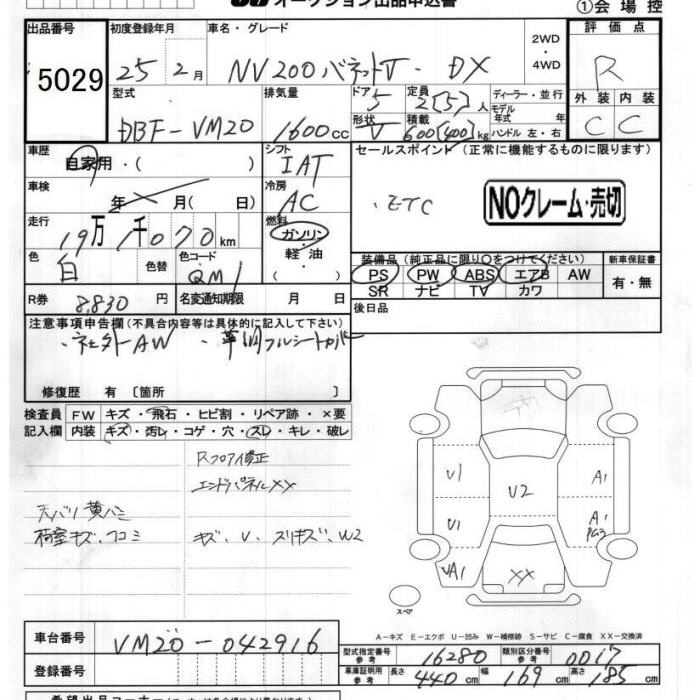 オークション出品申込書
①会場控
出品番号 5029
初度登録年月 25 2月
車名・グレード NV200 バネットV - DX
2WD
・
4WD
評価点 R
型式 DBF-VM20
排気量 1600cc
ドア 5
形状 V
定員 2[5]人
積載 600[400]kg
ディーラー・並行
モデル年式 年
ハンドル 左・右
外装 内装
C C
車歴 自家用・( )
シフト IAT
セールスポイント (正常に機能するものに限ります)
車検 年 月( 日)
冷房 AC
・ETC
NOクレーム・売切
走行 19万 1千070km
燃料 ガソリン・軽油・( )
色 白 色替
色コード QM1
装備品 (純正品に限り〇をつけてください)
PS PW ABS エアB AW
SR ナビ TV カワ
新車保証書
有・無
R券 8,830円
名変通知期限 月 日
後日品
注意事項申告欄 (不具合内容等は具体的に記入して下さい)
・社外AW ・革調フルシートカバー
修復歴 有 [箇所 ]
検査員 FW キズ・飛石・ヒビ割・リペア跡・×要
記入欄 内装 キズ・汚レ・コゲ・穴・スレ・キレ・破レ
Rフロア修正
エンドパネルXX
天バリ黄バミ
荷室キズ、凹コミ
キズ、V、スリキズ、W2
U1 V2 A1
U1 A1
UA1 XX
スペア
A-キズ E-エクボ U-凹み W-補修跡 S-サビ C-腐食 XX-交換済
車台番号 VM20-042916
登録番号
型式指定番号 参考 16280
類別区分番号 参考 0017
車庫証明用 参考 長さ 440cm 幅 169cm 高さ 185cm